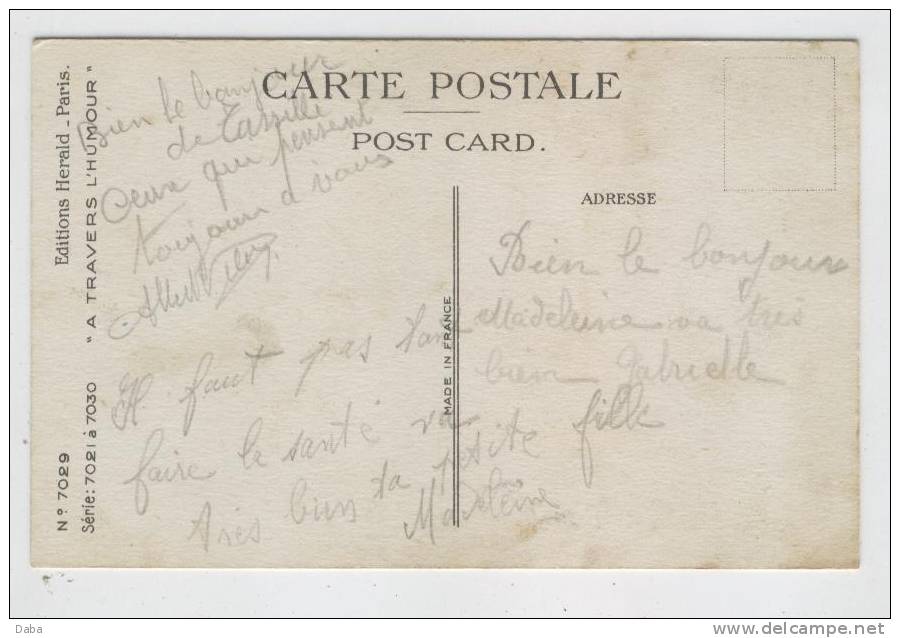 CARTE POSTALE
POST CARD.
ADRESSE
Editions Herald _ Paris.
"A TRAVERS L'HUMOUR"
Nº 7029
Série: 7021 à 7030
MADE IN FRANCE
Bien le bonjour
de
Ceux qui pensent
toujours a vous
Albert
Il faut pas tan
faire la santé va
très bien ta petite fille
Madeleine
Bien le bonjour
Madeleine va très
bien Gabrielle
Daba
www.delcampe.net